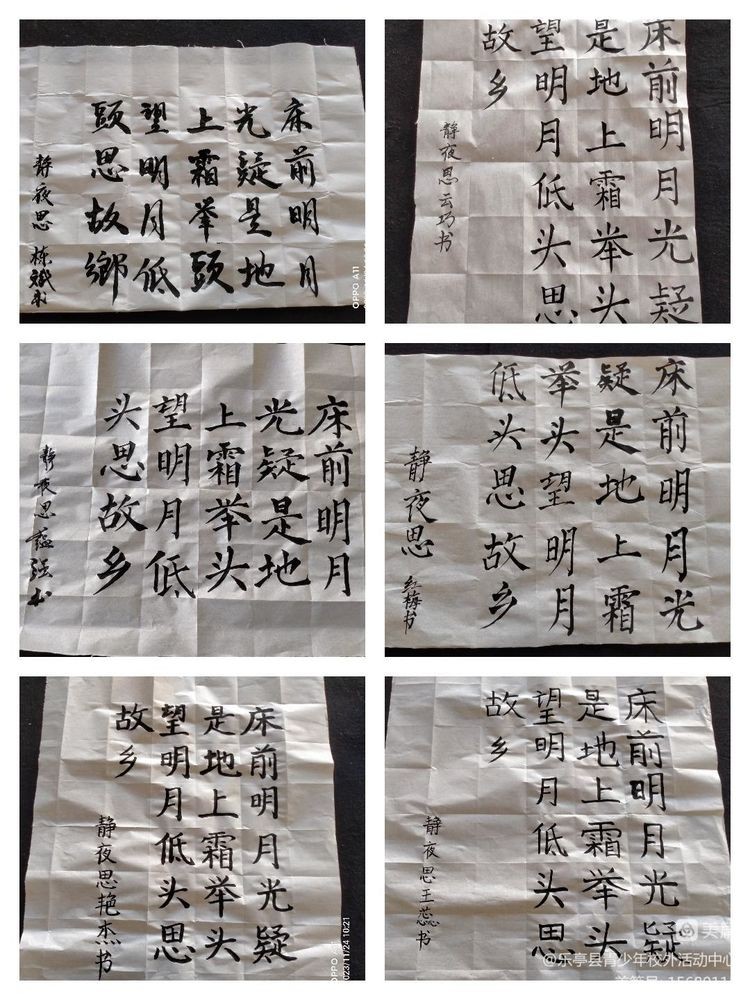 床前明月
光疑是地
上霜举頭
望明月低
頭思故鄉
静夜思
OPPO A11
床前明月光疑
是地上霜举头
望明月低头思
故乡
静夜思云巧书
床前明月
光疑是地
上霜举头
望明月低
头思故乡
静夜思
床前明月光
疑是地上霜
举头望明月
低头思故乡
静夜思 红梅书
床前明月光疑
是地上霜举头
望明月低头思
故乡
静夜思艳杰书
OPPO
023/11/24 10:21
床前明月光疑
是地上霜举头
望明月低头思
故乡
静夜思王蕊书
美篇
@乐亭县青少年校外活动中心